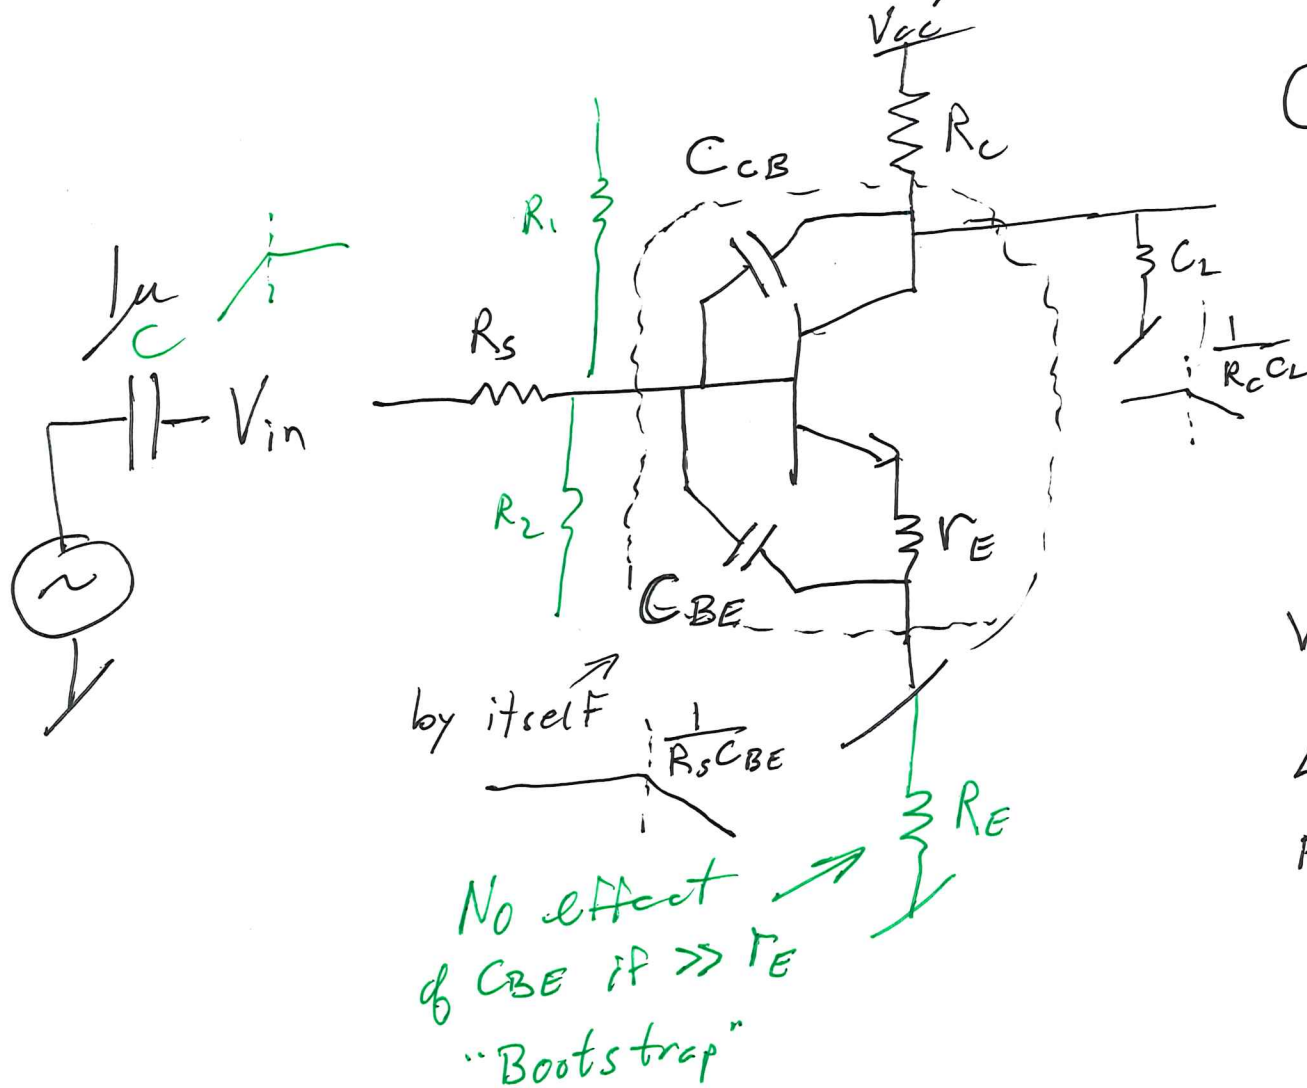 Vcc
Rc
CCB
R1
1μ
C
Rs
CL
1
RcCL
Vin
R2
rE
CBE
by itself
1
RsCBE
RE
No effect
of CBE if >> rE
"Bootstrap"